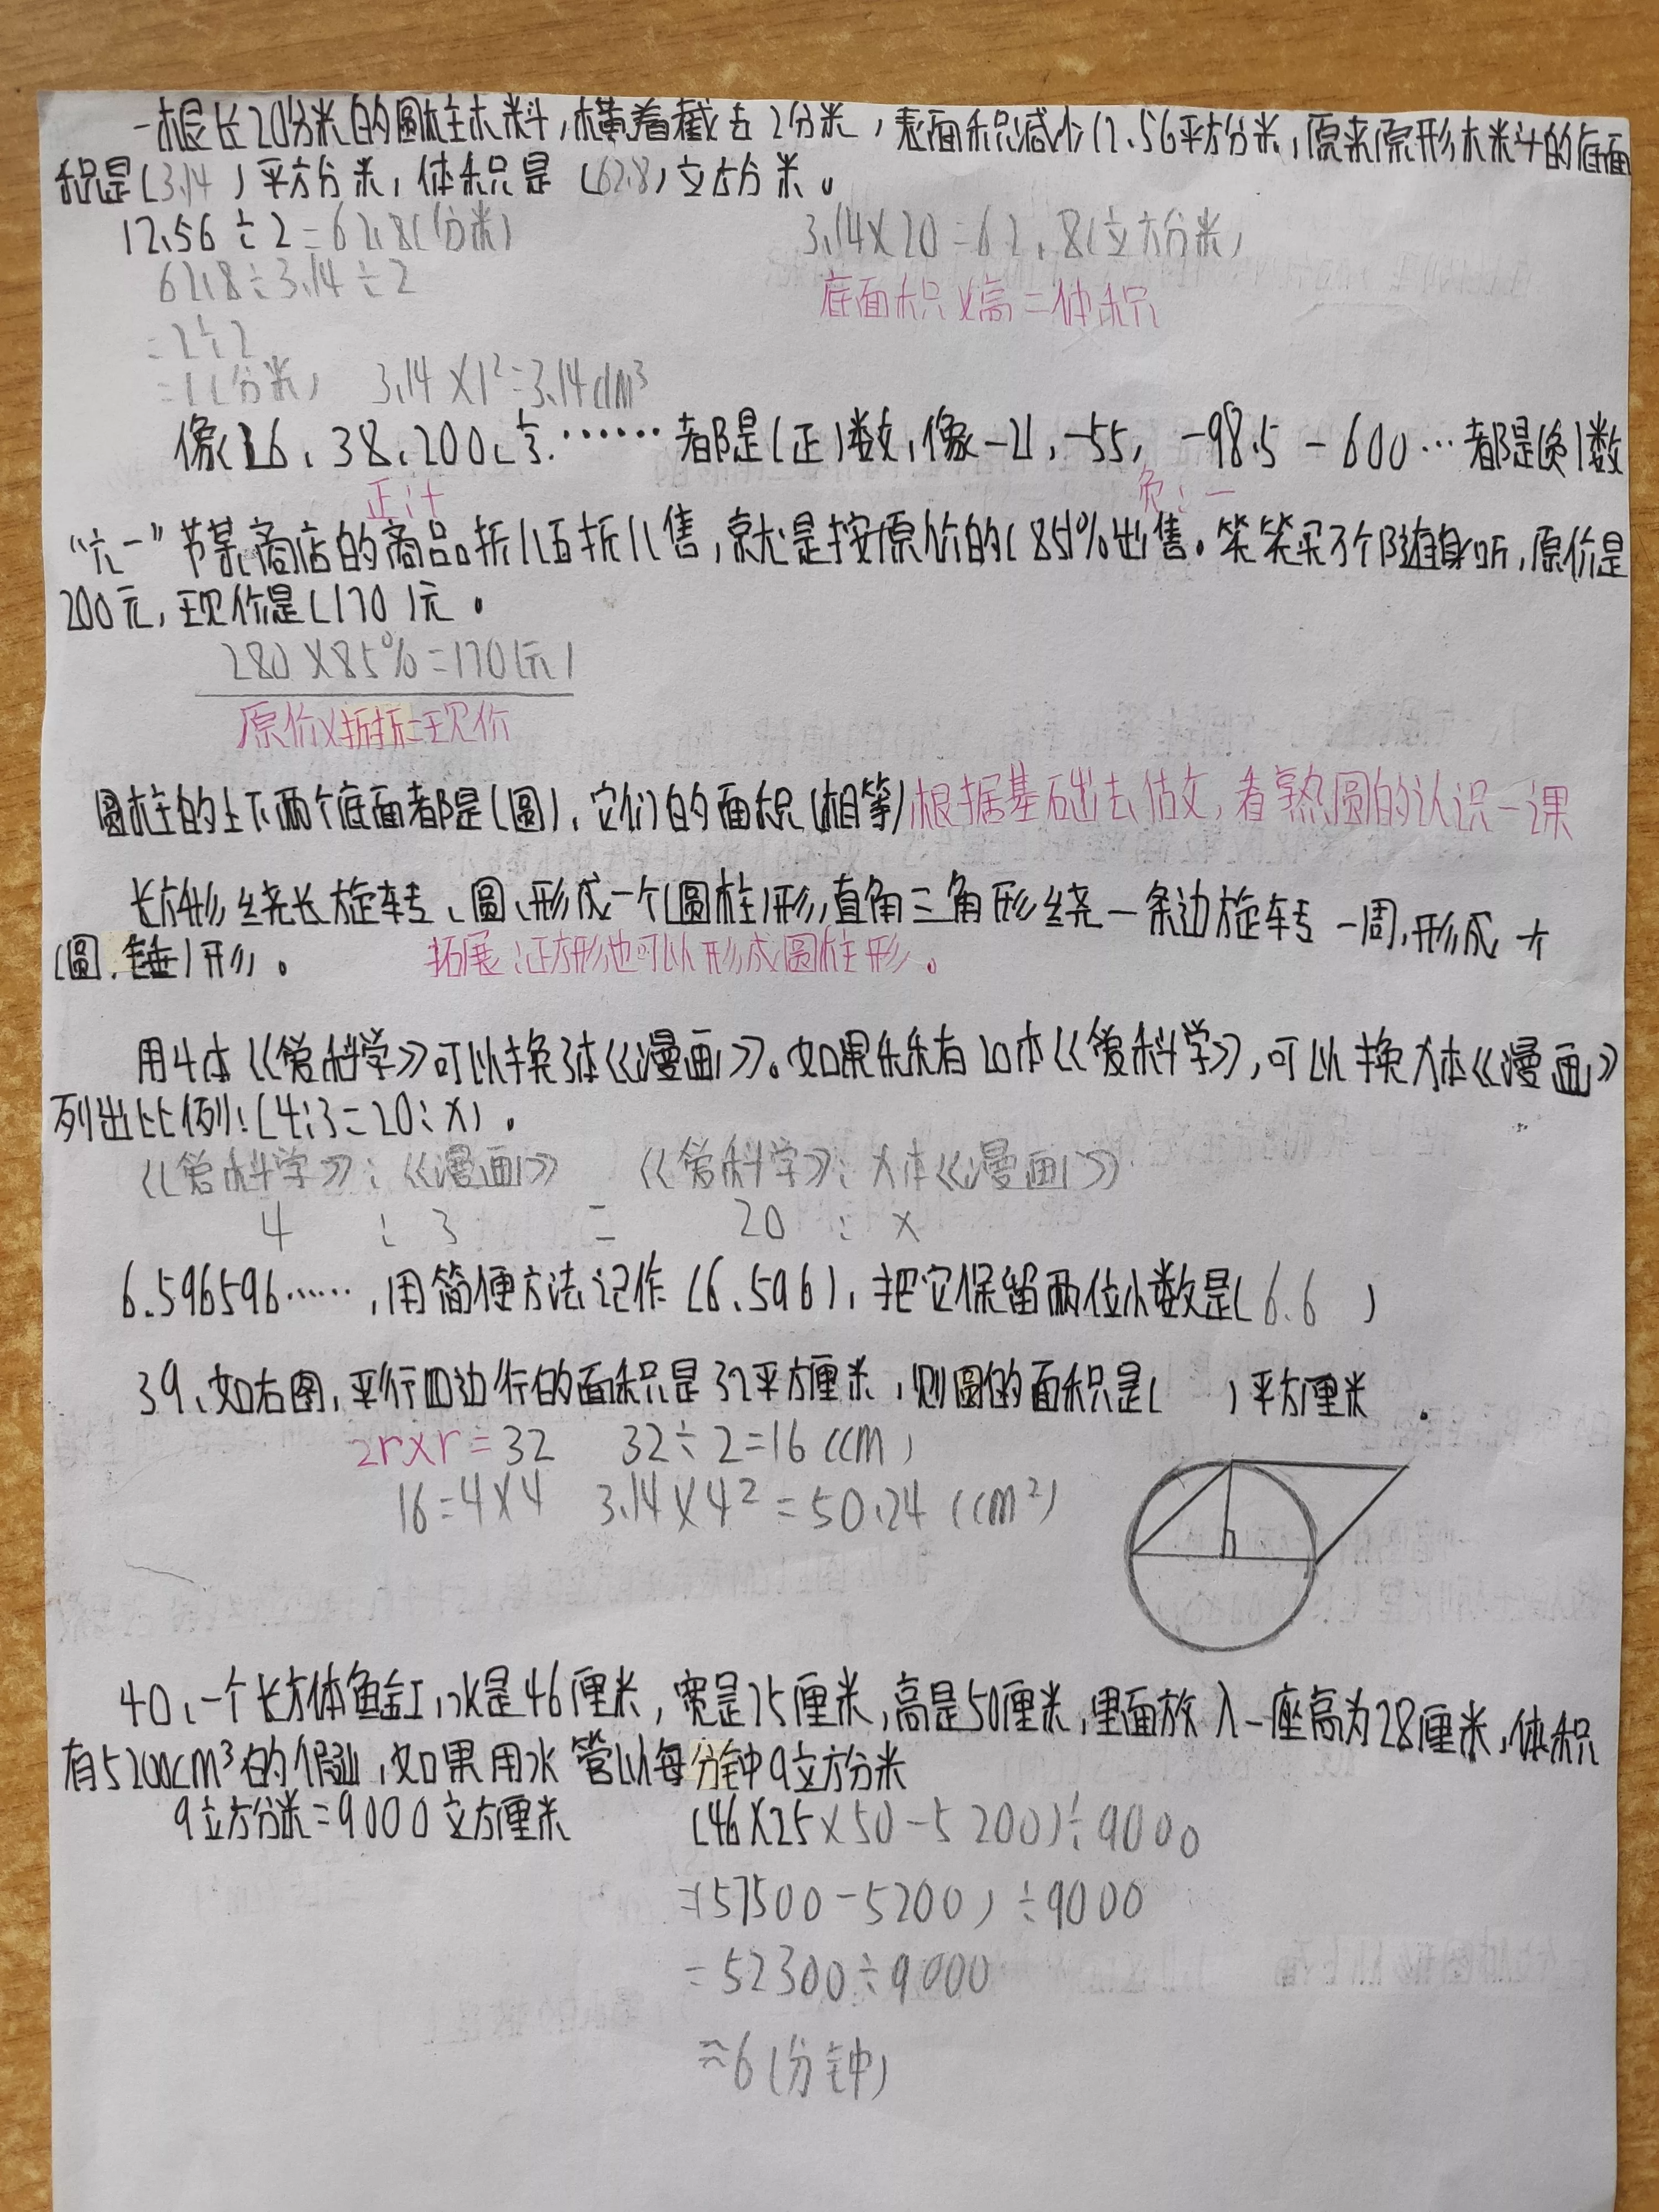 一根长20分米的圆柱木料,横着截去2分米,表面积减少12.56平方分米,原来原形木料的底面
积是(3.14)平方分米,体积是(62.8)立方分米。
12.56÷2=62.8(分米) 3.14×20=62.8(立方分米)
62.8÷3.14÷2 底面积×高=体积
=2÷2
=1(分米) 3.14×1²=3.14dm³
像16、38、200、……都是(正)数,像-21,-55,-98.5 -600…都是(负)数
正:+ 负:-
“六一”节某商店的商品。折八五折八售,就是按原价的(85)%出售。笑笑买了个随身听,原价是
200元,现价是(170)元。
280×85%=170(元)
原价×折折=现价
圆柱的上下两个底面都是(圆)、它们的面积(相等)根据基础去估文,看熟圆的认识一课
长方形绕长旋转、圆、形成一个(圆柱)形,直角三角形绕一条边旋转一周,形成
(圆.锤)形。 拓展:正方形也可以形成圆柱形。
用4本《爱科学》可以换3本《漫画》。如果乐乐有20本《爱科学》,可以换x本《漫画》
列出比例:(4:3=20:x)。
《爱科学》:《漫画》 《爱科学》:x本《漫画》
4 : 3 = 20 : x
6.596596……,用简便方法记作(6.596),把它保留两位小数是(6.6 )
39、如右图,平行四边行的面积是32平方厘米,则圆的面积是( )平方厘米.
2r×r=32 32÷2=16(cm)
16=4×4 3.14×4²=50.24(cm²)
40、一个长方体鱼缸,水是46厘米,宽是25厘米,高是50厘米,里面放入一座高为28厘米,体积
有5200cm³的假山,如果用水管以每分钟9立方分米
9立方分米=9000立方厘米 (46×25×50-5200)÷9000
=(57500-5200)÷9000
=52300÷9000
≈6(分钟)